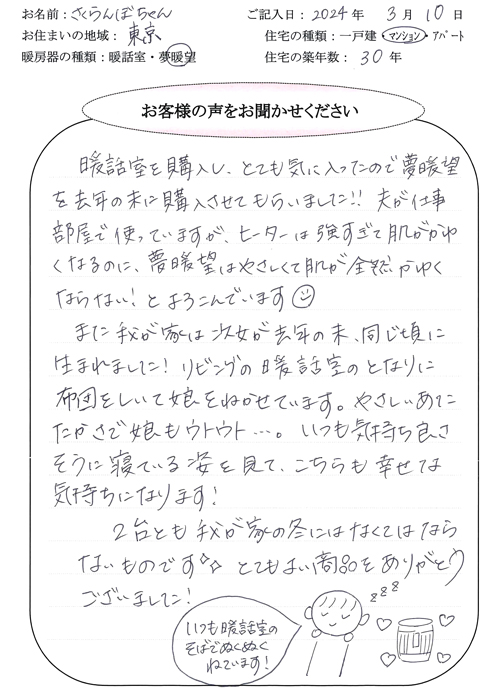 お名前：さくらんぼちゃん　ご記入日：2024年 3月 10日
お住まいの地域：東京　住宅の種類：一戸建・マンション・アパート
暖房器の種類：暖話室・夢暖望　住宅の築年数：30年
お客様の声をお聞かせください
暖話室を購入し、とても気に入ったので夢暖望
を去年の末に購入させてもらいました!! 夫が仕事
部屋で使っていますが、ヒーターは強すぎて肌がかゆ
くなるのに、夢暖望はやさしくて肌が全然かゆく
ならない！とよろこんでいます
また我が家は次女が去年の末、同じ頃に
生まれました！リビングの暖話室のとなりに
布団をしいて娘をねかせています。やさしいあた
たかさで娘もウトウト…。いつも気持ち良さ
そうに寝ている姿を見て、こちらも幸せな
気持ちになります！
2台とも我が家の冬にはなくてはなら
ないものです☆☆ とてもよい商品をありがとう
ございました！
いつも暖話室の
そばでぬくぬく
ねています！
zzz